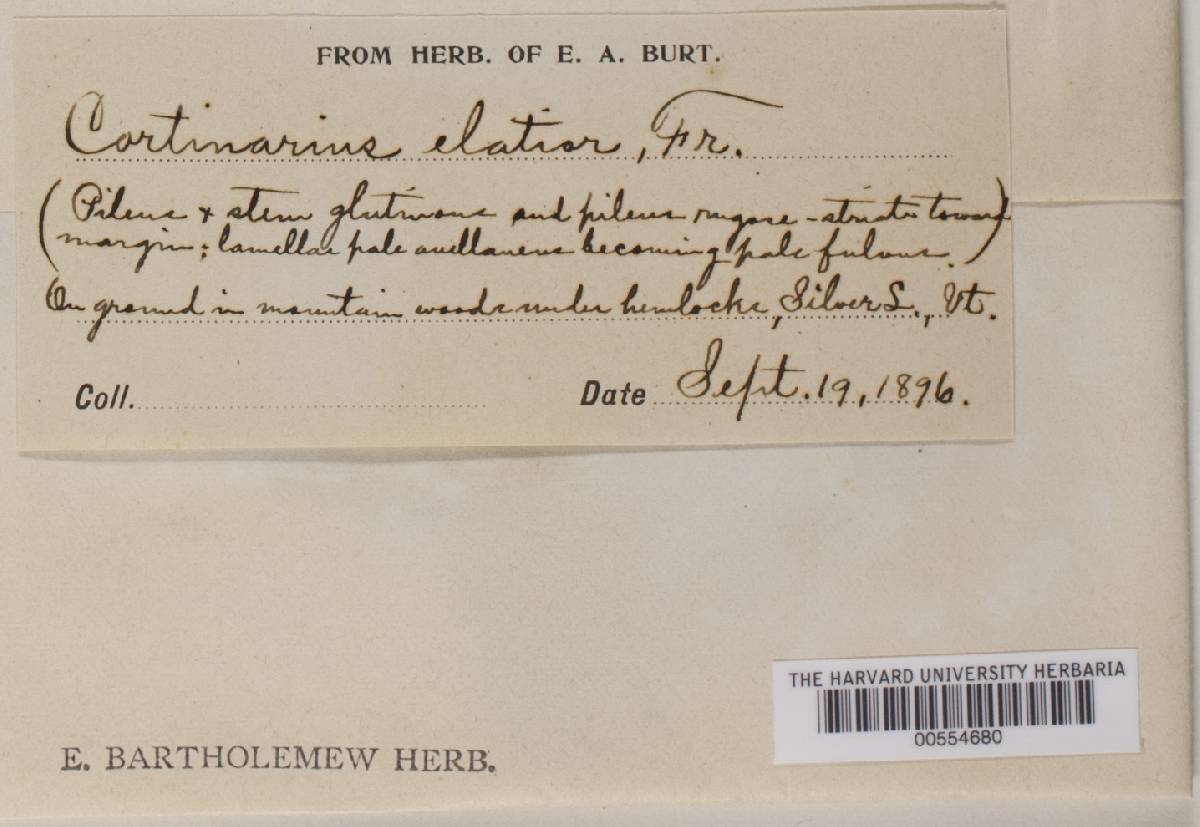 FROM HERB. OF E. A. BURT.
Cortinarius elatior, Fr.
(Pileus & stem glutinous and pileus rugose-striate toward
margin; lamellae pale avellaneus becoming pale fulvous.)
On ground in mountain woods under hemlocks, Silver L., Vt.
Coll. Date Sept. 19, 1896.
THE HARVARD UNIVERSITY HERBARIA
00554680
E. BARTHOLEMEW HERB.